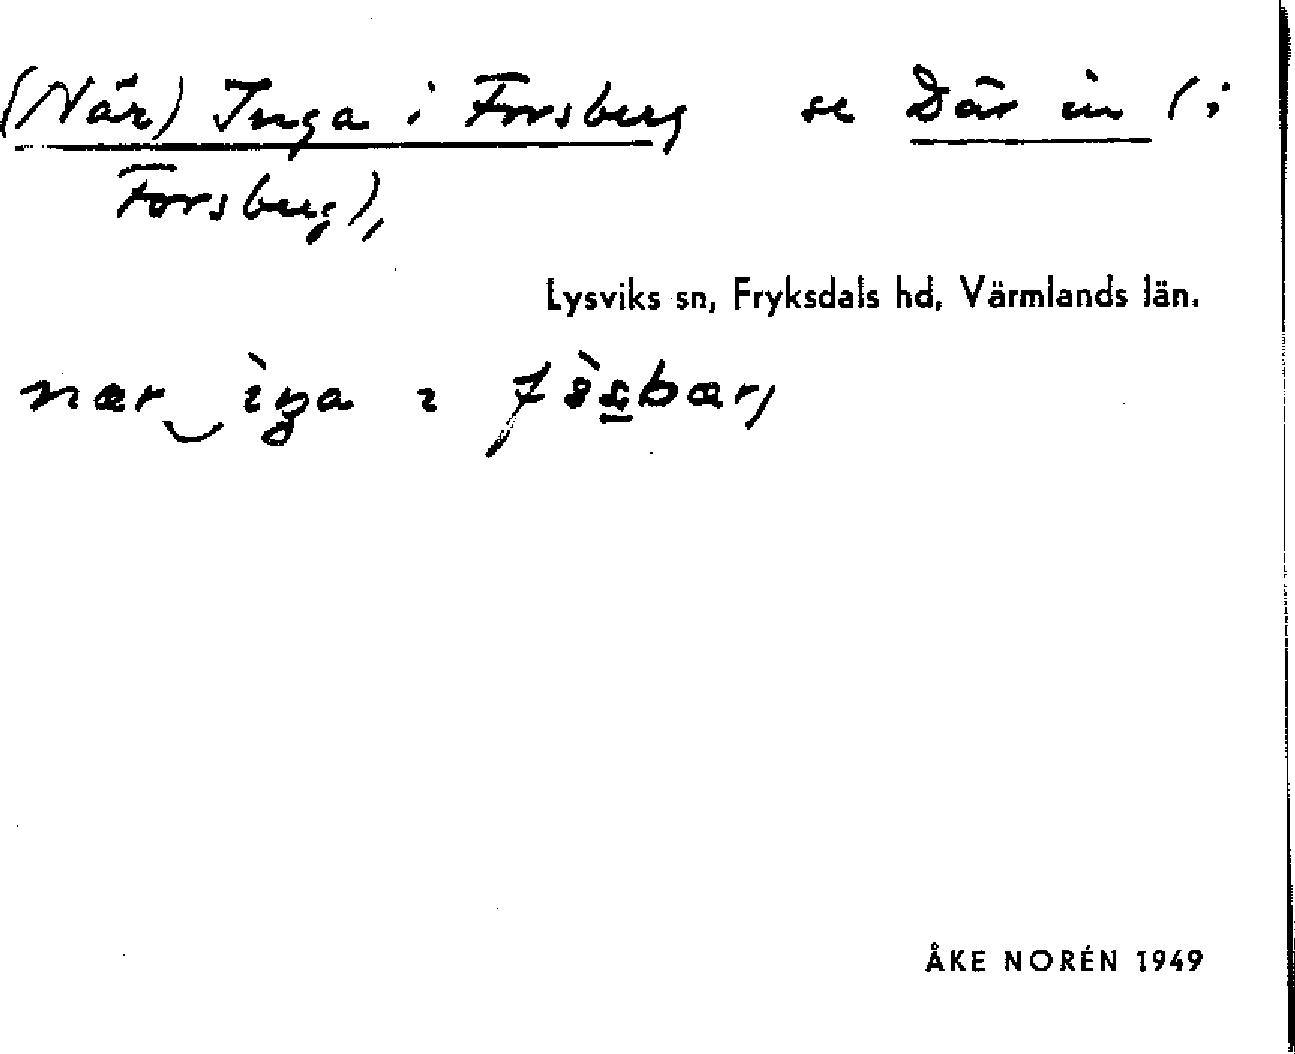 (När) Inga i Forsberg se Där in (i
Forsberg),
Lysviks sn, Fryksdals hd, Värmlands län.
nær‿ ìŋa ɩ
ÅKE NORÉN 1949